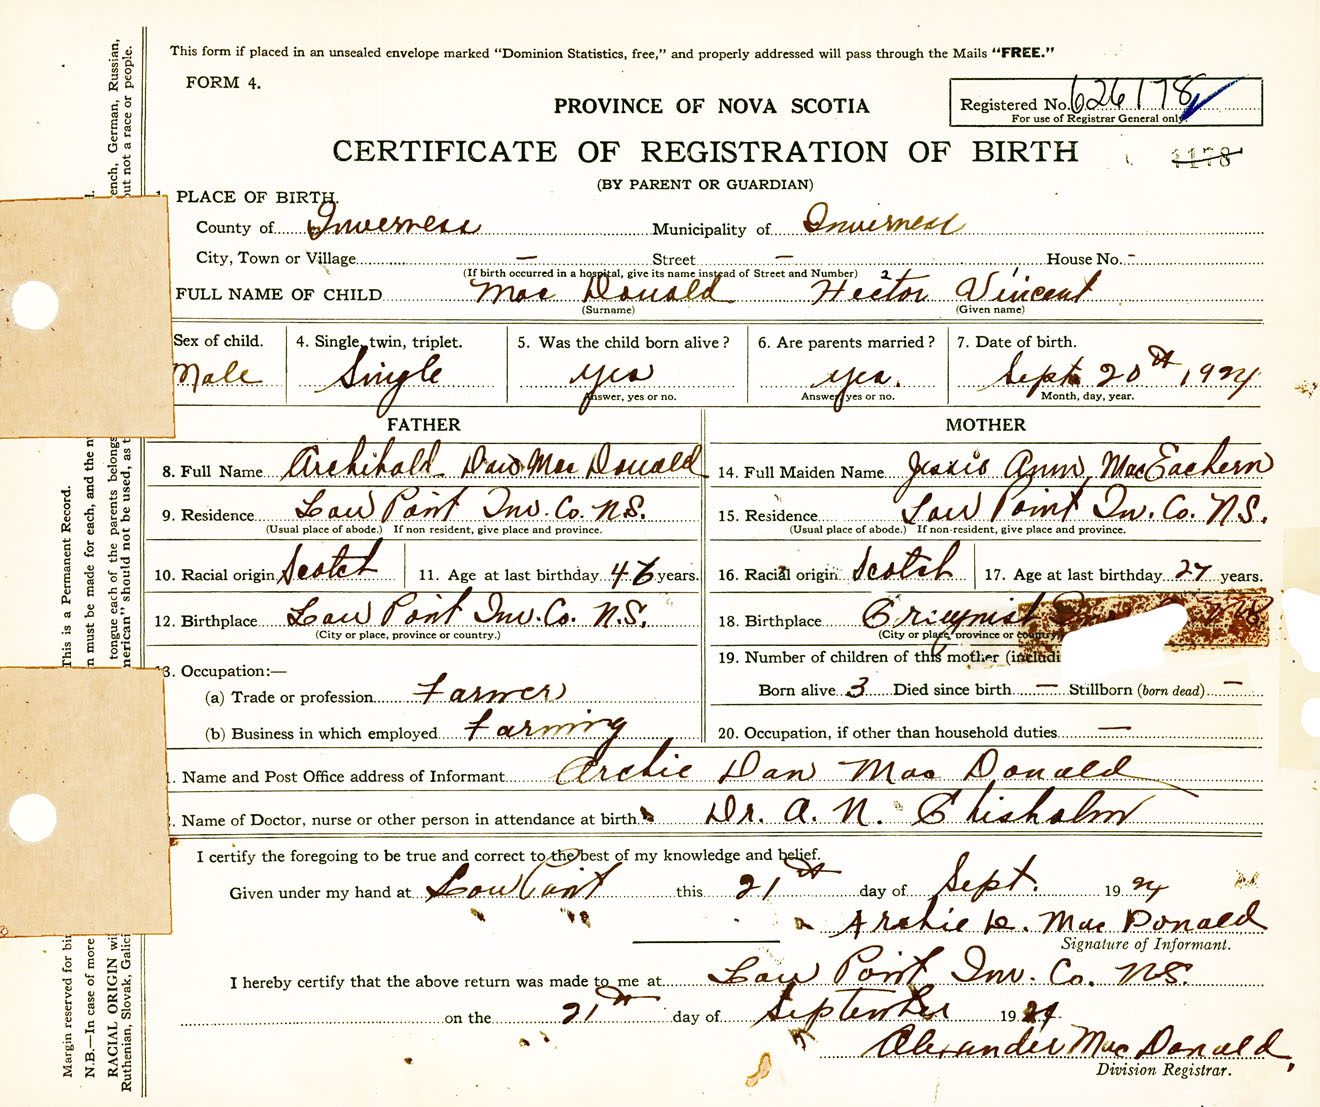 This form if placed in an unsealed envelope marked "Dominion Statistics, free," and properly addressed will pass through the Mails "FREE."
FORM 4.
Registered No. 626178
For use of Registrar General only.
PROVINCE OF NOVA SCOTIA
CERTIFICATE OF REGISTRATION OF BIRTH
1178
(BY PARENT OR GUARDIAN)
PLACE OF BIRTH.
County of Inverness Municipality of Inverness
City, Town or Village — Street — House No. -
(If birth occurred in a hospital, give its name instead of Street and Number)
FULL NAME OF CHILD Mac Donald Hector 2 Vincent 1
(Surname) (Given name)
Sex of child. 4. Single, twin, triplet. 5. Was the child born alive? 6. Are parents married? 7. Date of birth.
Male Single yes yes. Sept 20th 1924
Answer, yes or no. Answer, yes or no. Month, day, year.
FATHER MOTHER
8. Full Name Archibald Mac Donald 14. Full Maiden Name Jessie Ann MacEachern
9. Residence Low Point Inv. Co. N.S. 15. Residence Low Point In. Co. N.S.
(Usual place of abode.) If non resident, give place and province. (Usual place of abode.) If non-resident, give place and province.
10. Racial origin Scotch 11. Age at last birthday 46 years. 16. Racial origin Scotch 17. Age at last birthday 27 years.
12. Birthplace Low Point Inv. Co. N.S. 18. Birthplace
(City or place, province or country.) (City or place, province or country
13. Occupation:— 19. Number of children of this mother (includi
(a) Trade or profession Farmer Born alive 3 Died since birth — Stillborn (born dead) —
(b) Business in which employed Farming 20. Occupation, if other than household duties —
1. Name and Post Office address of Informant Archie Dan Mac Donald
. Name of Doctor, nurse or other person in attendance at birth Dr. A. N. Chisholm
I certify the foregoing to be true and correct to the best of my knowledge and belief.
Given under my hand at Low Point this 21th day of Sept. 1924
Archie D. Mac Donald
Signature of Informant.
I hereby certify that the above return was made to me at Low Point Inv. Co. N.S.
on the 21th day of September 1924
Alexander Mac Donald,
Division Registrar.
Margin reserved for bin
This is a Permanent Record.
N.B.—In case of more
n must be made for each, and the n
RACIAL ORIGIN wi
tongue each of the parents belongs
ench, German, Russian,
Ruthenian, Slovak, Galici
merican" should not be used, as t
but not a race or people.